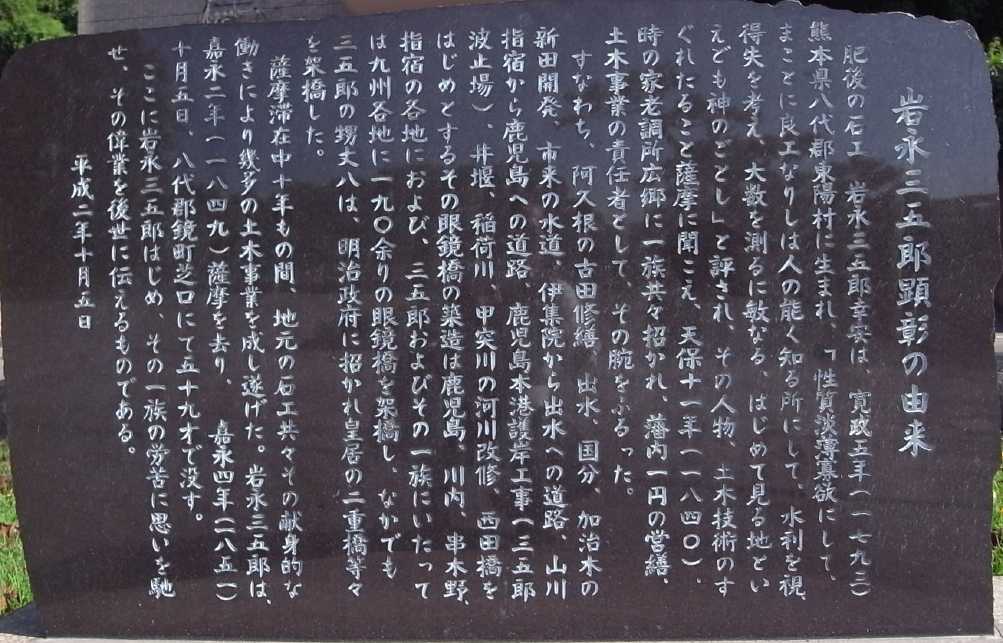 岩永三五郎顕彰の由来
肥後の石工、岩永三五郎幸安は、寛政五年（一七九三）
熊本県八代郡東陽村に生まれ、「性質淡薄寡欲にして、
まことに良工なりしは人の能く知る所にして、水利を視、
得失を考え、大数を測るに敏なる、はじめて見る地とい
えども神のごとし」と評され、その人物、土木技術のす
ぐれたること薩摩に聞こえ、天保十一年（一八四〇）、
時の家老調所広郷に一族共々招かれ、藩内一円の営繕、
土木事業の責任者として、その腕をふるった。
すなわち、阿久根の古田修繕、出水、国分、加治木の
新田開発、市来の水道、伊集院から出水への道路、山川
指宿から鹿児島への道路、鹿児島本港護岸工事（三五郎
波止場）、井堰、稲荷川、甲突川の河川改修、西田橋を
はじめとするその眼鏡橋の築造は鹿児島、川内、串木野、
指宿の各地におよび、三五郎およびその一族にいたって
は九州各地に一九〇余りの眼鏡橋を架橋し、なかでも
三五郎の甥丈八は、明治政府に招かれ皇居の二重橋等々
を架橋した。
薩摩滞在中十年もの間、地元の石工共々その献身的な
働きにより幾多の土木事業を成し遂げた。岩永三五郎は、
嘉永二年（一八四九）薩摩を去り、嘉永四年（一八五一）
十月五日、八代郡鏡町芝口にて五十九才で没す。
ここに岩永三五郎はじめ、その一族の労苦に思いを馳
せ、その偉業を後世に伝えるものである。
平成二年十月五日